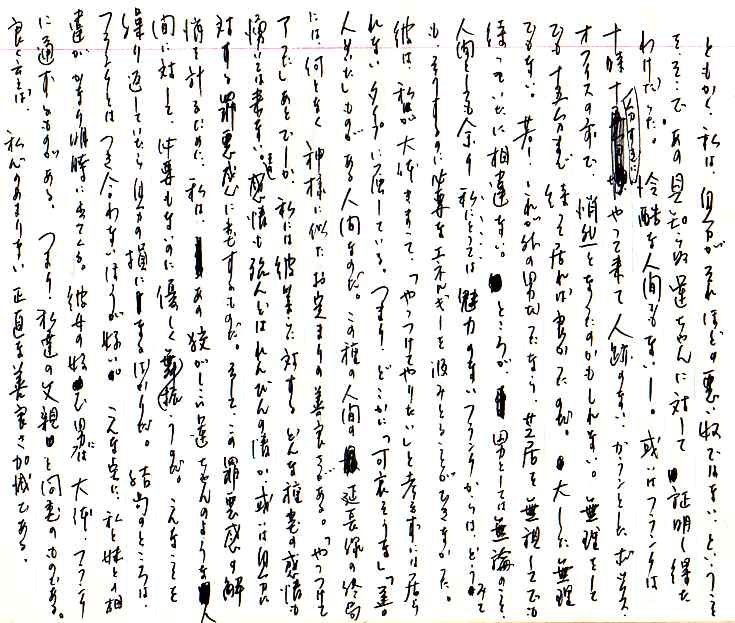 ともかく、私は、自分がそれほどの悪い奴ではない、ということ
を、そこで、あの見知らぬ連ちゃんに対して証明し得た
わけだった。冷酷な人間でもない――。或いはフランクは
十時十五分すぎにやって来て人跡のない、ガランとした
オフィスの前で、悄然となったのかもしれない。無理をして
でも十五分まで待って居れば良かったのだ。大した無理
でもない。若し、これが外の男なら、芝居を無視してでも
待っていたに相違ない。ところが、男としては無論のこと、
人間としても余り私にとっては魅力のないフランクからは、どうみて
も、そうするのに必要なエネルギーを汲みとることができなかった。
彼は、私が大体きまって、「やっつけてやりたい」と考えずには居ら
れないタイプに属している。つまり、どこかに「可哀そうな」「善
人じみた」ものがある人間なのだ。この種の人間の延長線の終局
には、何となく神様に似たお定まりの善良さがある。「やっつけて
アでしあとでしか、私には彼等に対するどんな種類の感情も
湧いては来ない。感情も殆んどはれんびんの情か、或いは自分に
対する罪悪感に走るものだ。そして、この罪悪感の解
消を計るために、私は、あの
連ちゃんのような人
間に対して、必要もないのに優しく振舞うのだ。こんなことを
繰り返していたら自分の損になるばかりだ。結局のところは、
フランクとはつき合わないほうが好い。こんな点に、私と妹との相
違がかなり明瞭に出てくる。彼女の好む男には大体、フランク
に通ずるものがある。つまり、私達の父親と同型のものである。
良く言えば、私心のあまりない正直な善良さ加減である。